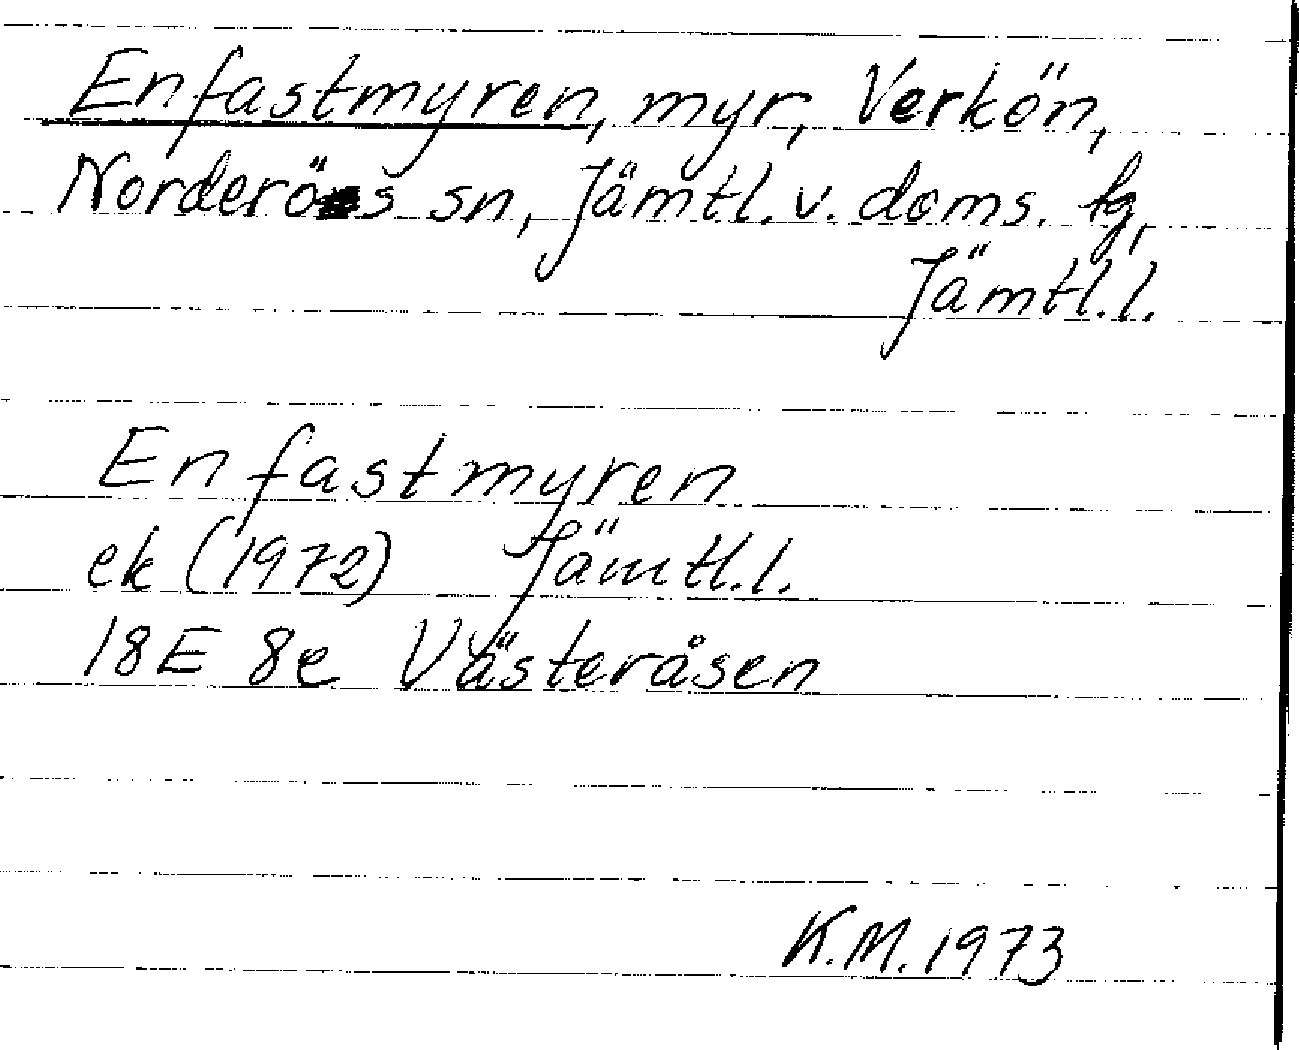 Enfastmyren, myr, Verkön,
Norderös sn, Jämtl. v. doms. lg,
Jämtl. l.
Enfastmyren
ek (1972) Jämtl. l.
18E 8e Västeråsen
K.M. 1973